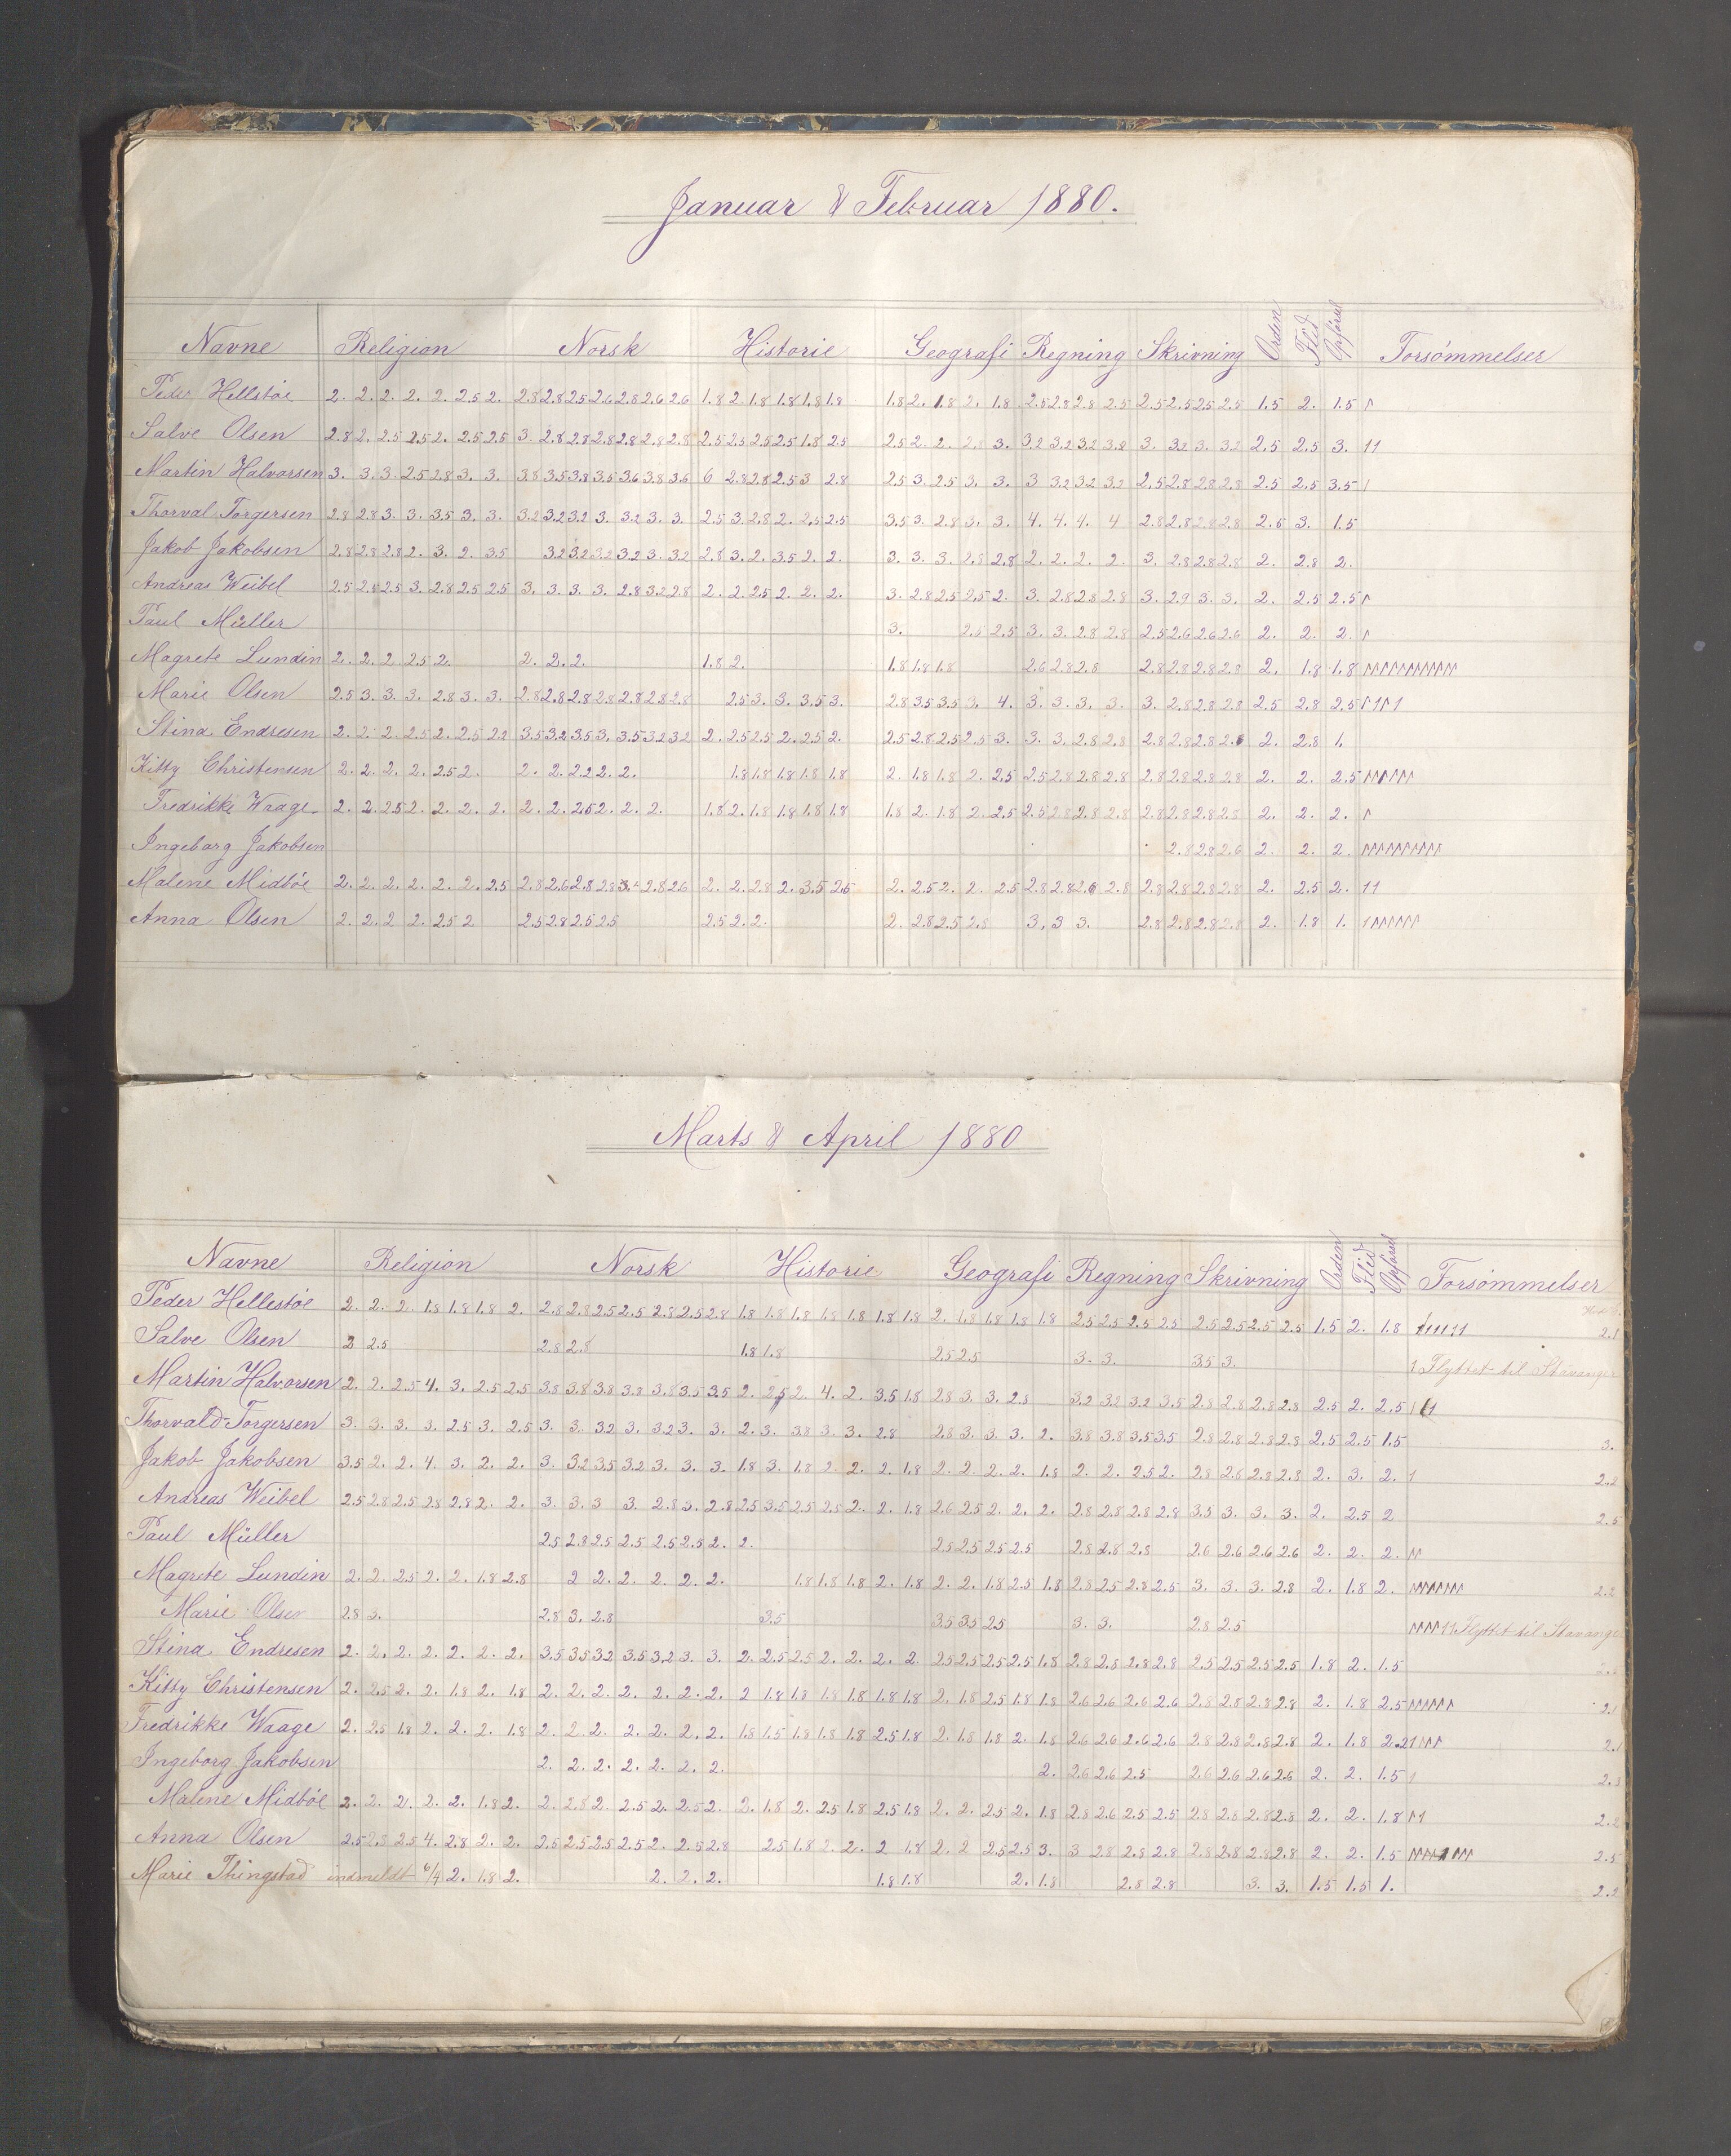 Januar & Februar 1880.
Navne Religion Norsk Historie Geografi Regning Skrivning Orden Flid Opförsel Forsömmelser
Peder Hellestöe 2. 2. 2. 2. 2. 2.5 2. 2.8 2.8 2.5 2.6 2.8 2.6 2.6 1.8 2 1.8 1.8 1.8 1.8 1.8 2. 1.8 2. 1.8 2.5 2.8 2.8 2.5 2.5 2.5 2.5 2.5 1.5 2. 1.5
Salve Olsen 2.8 2. 2.5 2.5 2. 2.5 2.5 3. 2.8 2.8 2.8 2.8 2.8 2.8 2.5 2.5 2.5 2.5 1.8 2.5 2.5 2. 2. 2.8 3. 3.2 3.2 3.2 3.2 3. 3.2 3. 3.2 2.5 2.5 3. 11
Martin Halvorsen 3. 3. 3. 2.5 2.8 3. 3. 3.8 3.5 3.8 3.5 3.6 3.8 3.6 6 2.8 2.8 2.5 3 2.8 2.5 3. 2.5 3. 3. 3 3.2 3.2 3.2 2.5 2.8 2.8 2.8 2.5 2.5 3.5 1
Thorval Torgersen 2.8 2.8 3. 3. 3.5 3. 3. 3.2 3.2 3.2 3. 3.2 3. 3. 2.5 3. 2.8 2. 2.5 2.5 3.5 3. 2.8 3. 3. 4. 4. 4. 4 2.8 2.8 2.8 2.8 2.6 3. 1.5
Jakob Jakobsen 2.8 2.8 2.8 2. 3. 2. 3.5 3.2 3.2 3.2 3.2 3. 3.2 2.8 3. 2. 3.5 2. 2. 3. 3. 3. 2.8 2.8 2. 2. 2. 2. 3. 2.8 2.8 2.8 2. 2.8 2.
Andreas Weibel 2.5 2.8 2.5 3. 2.8 2.5 2.5 3. 3. 3. 3. 2.8 3.2 2.8 2. 2. 2.5 2. 2. 2. 3. 2.8 2.5 2.5 2. 3. 2.8 2.8 2.8 3. 2.9 3. 3. 2. 2.5 2.5
Paul Müller 3. 2.5 2.5 3. 3. 2.8 2.8 2.5 2.6 2.6 2.6 2. 2. 2.
Magrete Lundin 2. 2. 2. 2.5 2. 2. 2. 2. 1.8 2. 1.8 1.8 1.8 2.6 2.8 2.8 2.8 2.8 2.8 2.8 2. 1.8 1.8
Marie Olsen 2.5 3. 3. 3. 2.8 3. 3. 2.8 2.8 2.8 2.8 2.8 2.8 2.8 2.5 3. 3. 3.5 3. 2.8 3.5 3.5 3. 4. 3. 3. 3. 3. 3. 2.8 2.8 2.8 2.5 2.8 2.5
Stina Endresen 2. 2. 2. 2.5 2. 2.5 2.2 3.5 3.2 3.5 3. 3.5 3.2 3.2 2. 2.5 2.5 2. 2.5 2. 2.5 2.8 2.5 2.5 3. 3. 3. 2.8 2.8 2.8 2.8 2.8 2. 2.8 1.
Kitty Christensen 2. 2. 2. 2. 2.5 2. 2. 2. 2.2 2. 2. 1.8 1.8 1.8 1.8 1.8 2. 1.8 1.8 2. 2.5 2.5 2.8 2.8 2.8 2.8 2.8 2.8 2.8 2. 2. 2.5
Fredrikke Waage 2. 2. 2.5 2. 2. 2. 2. 2. 2. 2.5 2. 2. 2. 1.8 2. 1.8 1.8 1.8 1.8 1.8 2. 1.8 2. 2.5 2.5 2.8 2.8 2.8 2.8 2.8 2.8 2.8 2. 2. 2.
Ingeborg Jakobsen 2.8 2.8 2.6 2. 2. 2.
Malene Midböe 2. 2. 2. 2. 2. 2. 2.5 2.8 2.6 2.8 2.8 2.8 2.6 2. 2. 2.8 2. 3.5 2.5 2. 2.5 2. 2. 2.5 2.8 2.8 2.6 2.8 2.8 2.8 2.8 2.8 2. 2.5 2. 11
Anna Olsen 2. 2. 2 2. 2.5 2 2.5 2.8 2.5 2.5 2.5 2. 2. 2. 2.8 2.5 2.8 3. 3 3. 2.8 2.8 2.8 2.8 2. 1.8 1.
Marts & April 1880
Navne Religion Norsk Historie Geografi Regning Skrivning Orden Flid Opförsel Forsömmelser
Peder Hellestöe 2. 2. 2. 1.8 1.8 1.8 2. 2.8 2.8 2.5 2.5 2.8 2.5 2.8 1.8 1.8 1.8 1.8 1.8 1.8 1.8 2. 1.8 1.8 1.8 1.8 2.5 2.5 2.5 2.5 2.5 2.5 2.5 2.5 1.5 2. 1.8 2.1
Salve Olsen 2.5 2.8 2.8 1.8 1.8 2.5 2.5 3. 3. 3.5 3. 1 Flyttet til Stavanger
Martin Halvorsen 2. 2. 2.5 4. 3. 2.5 2.5 3.8 3.8 3.8 3.8 3.8 3.5 3.5 2. 2.5 2. 4. 2. 3.5 1.8 2.8 3. 3. 2.8 3.2 3.2 3.2 3.5 2.8 2.8 2.8 2.8 2.5 2. 2.5
Thorvald Torgersen 3. 3. 3. 3. 2.5 3. 2.5 3. 3. 3.2 3. 3.2 3. 3. 2. 3. 3.8 3. 3. 2.8 2.8 3. 3. 3. 2. 3.8 3.8 3.5 3.5 2.8 2.8 2.8 2.8 2.5 2.5 1.5 3.
Jakob Jakobsen 3.5 2. 2. 4. 3. 2. 2. 3. 3.2 3.5 3.2 3. 3. 3. 1.8 3. 1.8 2. 2. 2. 1.8 2. 2. 2. 2. 1.8 2. 2. 2.5 2. 2.8 2.6 2.8 2.8 2. 3. 2. 1 2.2
Andreas Weibel 2.5 2.8 2.5 2.8 2.8 2. 2. 3. 3. 3 3. 2.8 3. 2.8 2.5 3.5 2.5 2.5 2. 2. 1.8 2.6 2.5 2. 2. 2. 2.8 2.8 2.8 2.8 3.5 3. 3. 3. 2. 2.5 2 2.5
Paul Müller 2.5 2.8 2.5 2.5 2.5 2.5 2. 2. 2.5 2.5 2.5 2.5 2.8 2.8 2.8 2.6 2.6 2.6 2.6 2. 2. 2.
Magrete Lundin 2. 2. 2.5 2. 2. 1.8 2.8 2 2. 2. 2. 2. 2. 1.8 1.8 1.8 2. 1.8 2. 2. 1.8 2.5 1.8 2.8 2.5 2.8 2.5 3. 3. 3. 2.8 2. 1.8 2. 2.2
Marie Olsen 2.8 3. 2.8 3. 2.8 3.5 3.5 3.5 2.5 3. 3. 2.8 2.5 Flyttet til Stavanger
Stina Endresen 2. 2. 2. 2. 2. 2. 2. 3.5 3.5 3.2 3.5 3.2 3. 3. 2. 2.5 2.5 2. 2. 2. 2. 2.5 2.5 2.5 2.5 1.8 2.8 2.8 2.8 2.8 2.5 2.5 2.5 2.5 1.8 2. 1.5
Kitty Christensen 2. 2.5 2. 2. 1.8 2. 1.8 2. 2. 2. 2. 2. 2. 2. 2 1.8 1.8 1.8 1.8 1.8 1.8 2. 1.8 2.5 1.8 1.8 2.6 2.6 2.6 2.6 2.8 2.8 2.8 2.8 2. 1.8 2.5 2.1
Fredrikke Waage 2. 2.5 1.8 2. 2. 2. 1.8 2. 2. 2. 2. 2. 2. 2. 1.8 1.5 1.8 1.8 1.8 2.5 1.8 2. 1.8 1.8 2. 1.8 2.6 2.6 2.6 2.6 2.8 2.8 2.8 2.8 2. 1.8 2.2 2.1
Ingeborg Jakobsen 2. 2. 2. 2. 2. 2. 2. 2. 2.6 2.6 2.5 2.6 2.6 2.6 2.6 2. 2. 1.5 1
Malene Midböe 2. 2. 2. 2. 2. 1.8 2. 2. 2.8 2. 2.5 2. 2.5 2. 2. 1.8 2. 2.5 1.8 2.5 1.8 2. 2. 2.5 2. 1.8 2.8 2.6 2.5 2.5 2.8 2.8 2.8 2.8 2. 2. 1.8 2.2
Anna Olsen 2.5 2.8 2.5 4. 2.8 2. 2. 2.5 2.5 2.5 2.5 2. 2.5 2.8 2.5 1.8 2. 2. 2 1.8 2. 2 2.5 2.5 3. 3 2.8 2.8 2.8 2.8 2.8 2.8 2.8 2. 2. 1.5 2.5
Marie Thingstad indmeldt 6/4 2. 1.8 2. 2. 2. 2. 1.8 1.8 2. 1.8 2.8 2.8 3. 3. 1.5 1.5 1. 2.2